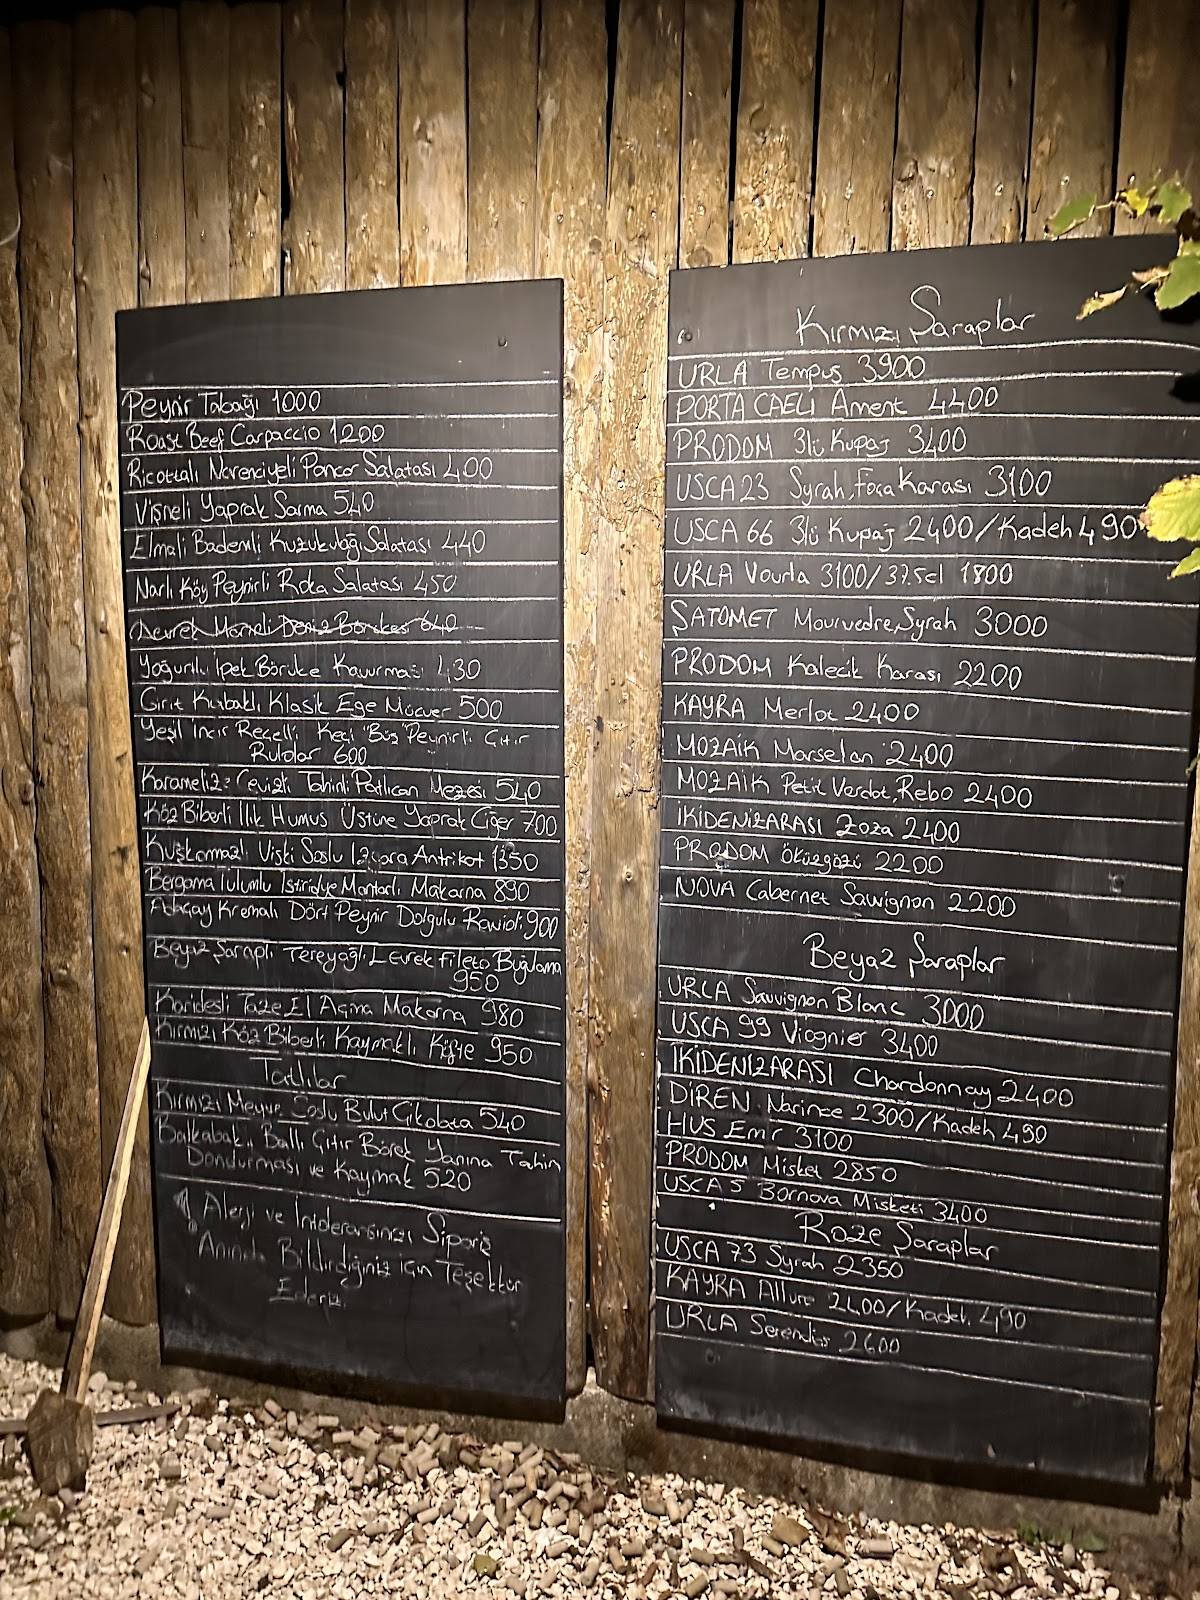 Peynir Tabağı 1000
Roast Beef Carpaccio 1200
Ricottalı Narenciyeli Pancar Salatası 400
Vişneli Yaprak Sarma 540
Elmalı Bademli Kuzukulağı Salatası 440
Narlı Köy Peynirli Roka Salatası 450
Deniz Börülcesi 640
Yoğurtlu İpek Börülce Kavurması 430
Girit Kabaklı Klasik Ege Mücver 500
Yeşil İncir Reçelli Keçi "Buş" Peynirli Çıtır
Rulolar 600
Karamelize Cevizli Tahinli Patlıcan Mezesi 540
Köz Biberli Ilık Humus Üstüne Yaprak Ciğer 700
Kuşkonmazlı Viski Soslu Izgara Antrikot 1350
Bergama Tulumlu İstiridye Mantarlı Makarna 890
Adaçay Kremalı Dört Peynir Dolgulu Ravioli 900
Beyaz Şaraplı Tereyağlı Levrek Fileto Buğulama
950
Karidesli Taze El Açma Makarna 980
Kırmızı Köz Biberli Kaymaklı Köfte 950
Tatlılar
Kırmızı Meyve Soslu Bulut Çikolata 540
Balkabaklı Ballı Çıtır Börek Yanına Tahin
Dondurması ve Kaymak 520
Alerji ve İntoleransınızı Sipariş
Anında Bildirdiğiniz için Teşekkür
Ederiz.
Kırmızı Şaraplar
URLA Tempus 3900
PORTA CAELI Ament 4400
PRODOM 3lü Kupaj 3400
USCA 23 Syrah, Foça Karası 3100
USCA 66 3lü Kupaj 2400/Kadeh 490
URLA Vourla 3100/37.5cl 1800
ŞATOMET Mourvedre, Syrah 3000
PRODOM Kalecik Karası 2200
KAYRA Merlot 2400
MOZAİK Marselan 2400
MOZAİK Petit Verdot, Rebo 2400
İKİDENİZARASI Zoza 2400
PRODOM Öküzgözü 2200
NOVA Cabernet Sauvignon 2200
Beyaz Şaraplar
URLA Sauvignon Blanc 3000
USCA 99 Viognier 3400
İKİDENİZARASI Chardonnay 2400
DİREN Narince 2300/Kadeh 490
HUS Emir 3100
PRODOM Misket 2850
USCA 5 Bornova Misketi 3400
Roze Şaraplar
USCA 73 Syrah 2350
KAYRA Allure 2400/Kadeh 490
URLA Serendias 2600